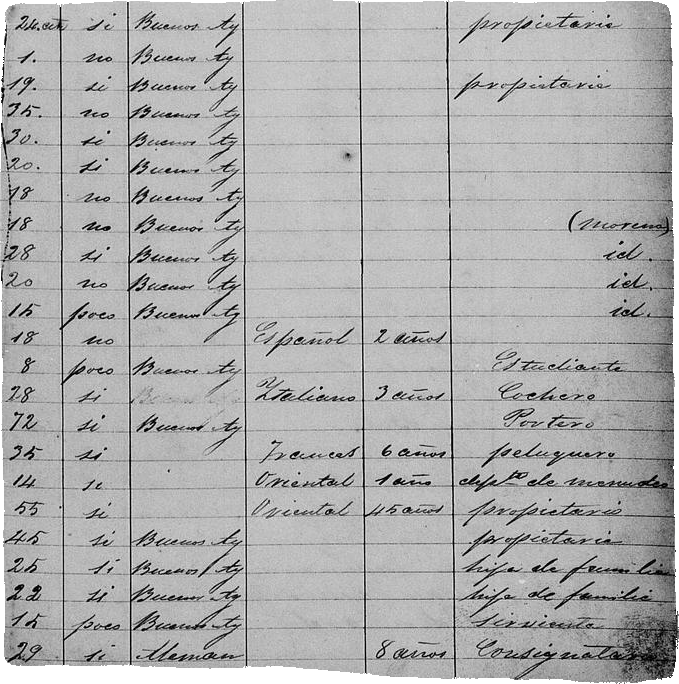 24 si Buenos Ay propietario
1. no Buenos Ay
19. si Buenos Ay propietario
35. no Buenos Ay
30. si Buenos Ay
20. si Buenos Ay
18 no Buenos Ay
18 no Buenos Ay (moreno)
28 si Buenos Ay id.
20 no Buenos Ay id.
15 poco Buenos Ay id.
18 no Español 2 años
8 poco Buenos Ay Estudiante
28 si Italiano 3 años Cochero
72 si Buenos Ay Portero
35 si Frances 6 años peluquero
14 si Oriental 1 año de
55 si Oriental 45 años propietario
45 si Buenos Ay propietaria
25 si Buenos Ay hija de familia
22 si Buenos Ay hija de familia
15 poco Buenos Ay sirvienta
29 si Aleman 8 años